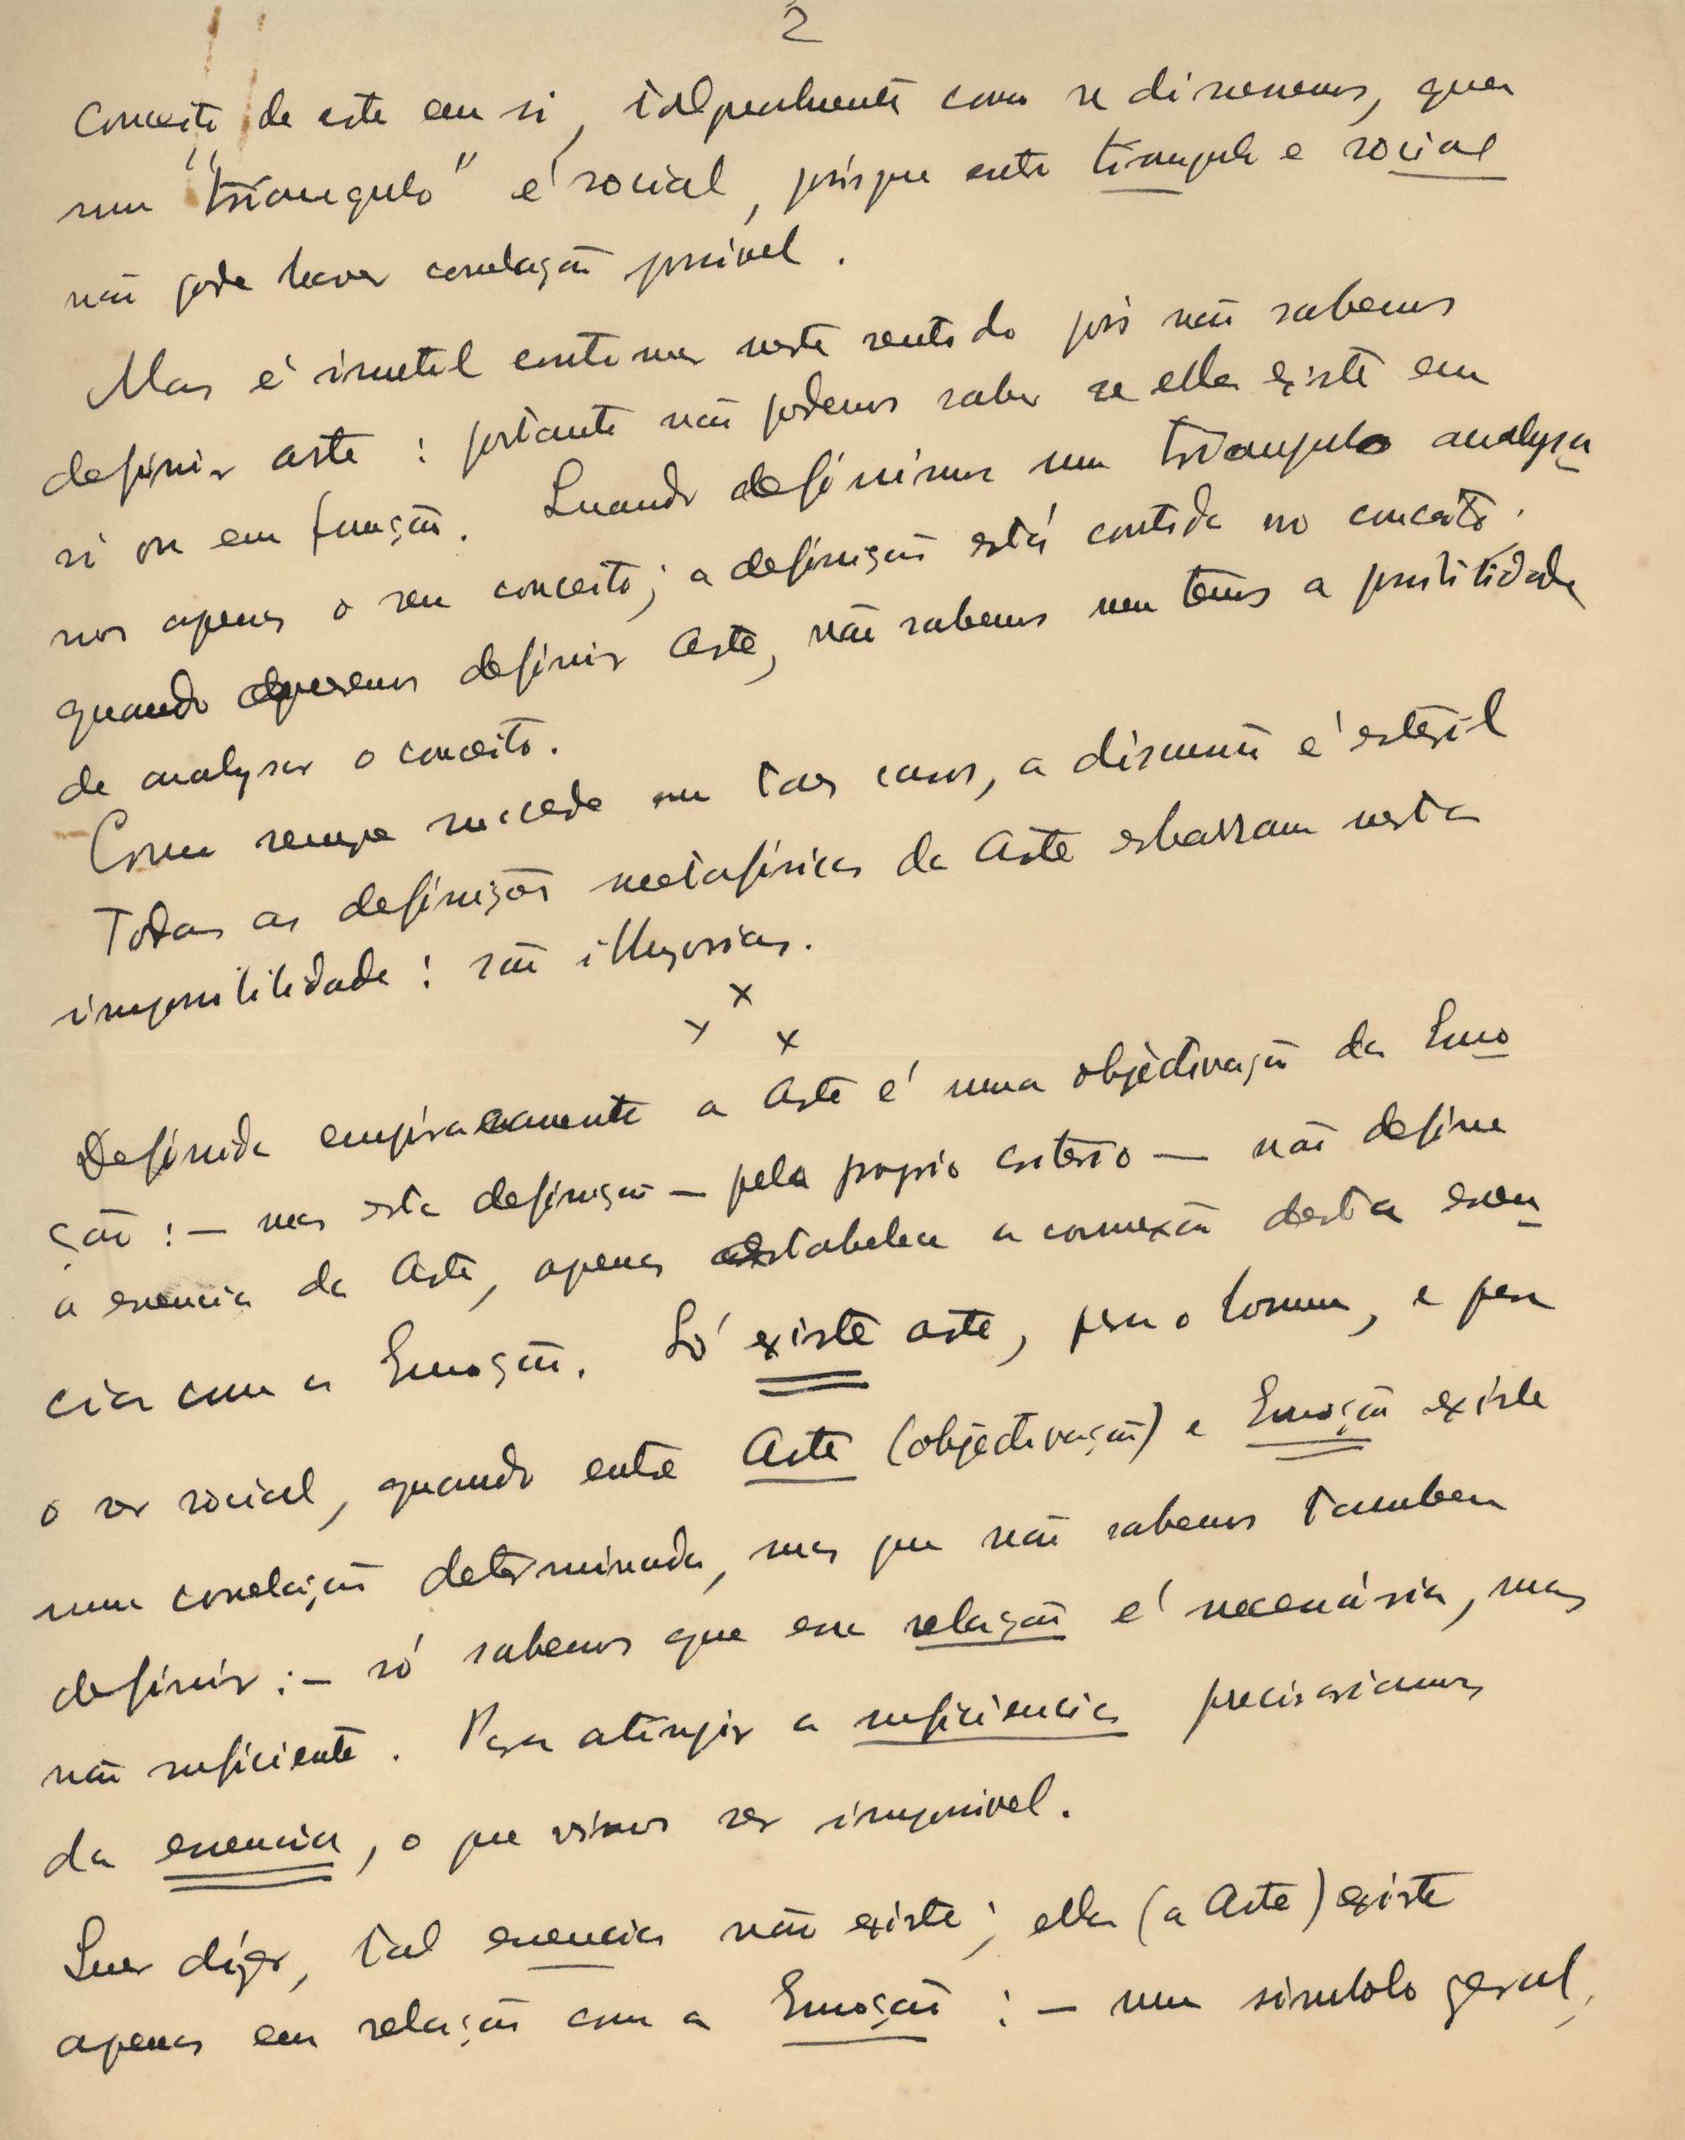 2
conceito de arte em si, talqualmente como se dissessemos, que
um "triangulo" é social, porque entre triangulo e social
não pode haver correlação possivel.
Mas é inutil continuar neste sentido pois não sabemos
definir arte: portanto não podemos saber se ella existe em
si ou em função. Quando definimos um triangulo analysa
mos apenas o seu conceito; a definição está contida no conceito.
quando queremos definir Arte, não sabemos nem temos a possibilidade
de analysar o conceito.
Como sempre succede em taes casos, a discussão é esteril
Todas as definições metafisicas da Arte esbarram nesta
impossibilidade: são illusorias.
x x x
Definida empiricamente a Arte é uma objectivação da Emo
ção: — mas esta definição — pelo proprio criterio — não define
a essencia da Arte, apenas estabelece a connexão desta essen
cia com a Emoção. Só existe arte, para o homem, e para
o ser social, quando entre Arte (objectivação) e Emoção existe
uma correlação determinada, mas que não sabemos tambem
definir: — só sabemos que essa relação é necessária, mas
não sufficiente. Para atingir a sufficiencia precisariamos
da essencia, o que vimos ser impossivel.
Quer dizer, tal essencia não existe; ella (a Arte) existe
apenas em relação com a Emoção: — um simbolo geral,